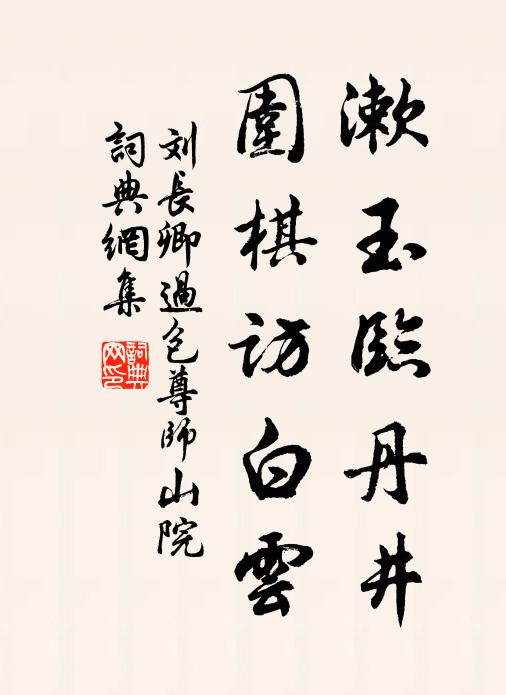 漱玉臨丹井
圍棋訪白雲
刘長卿過包尊師山院
詞典網集
詞典网印